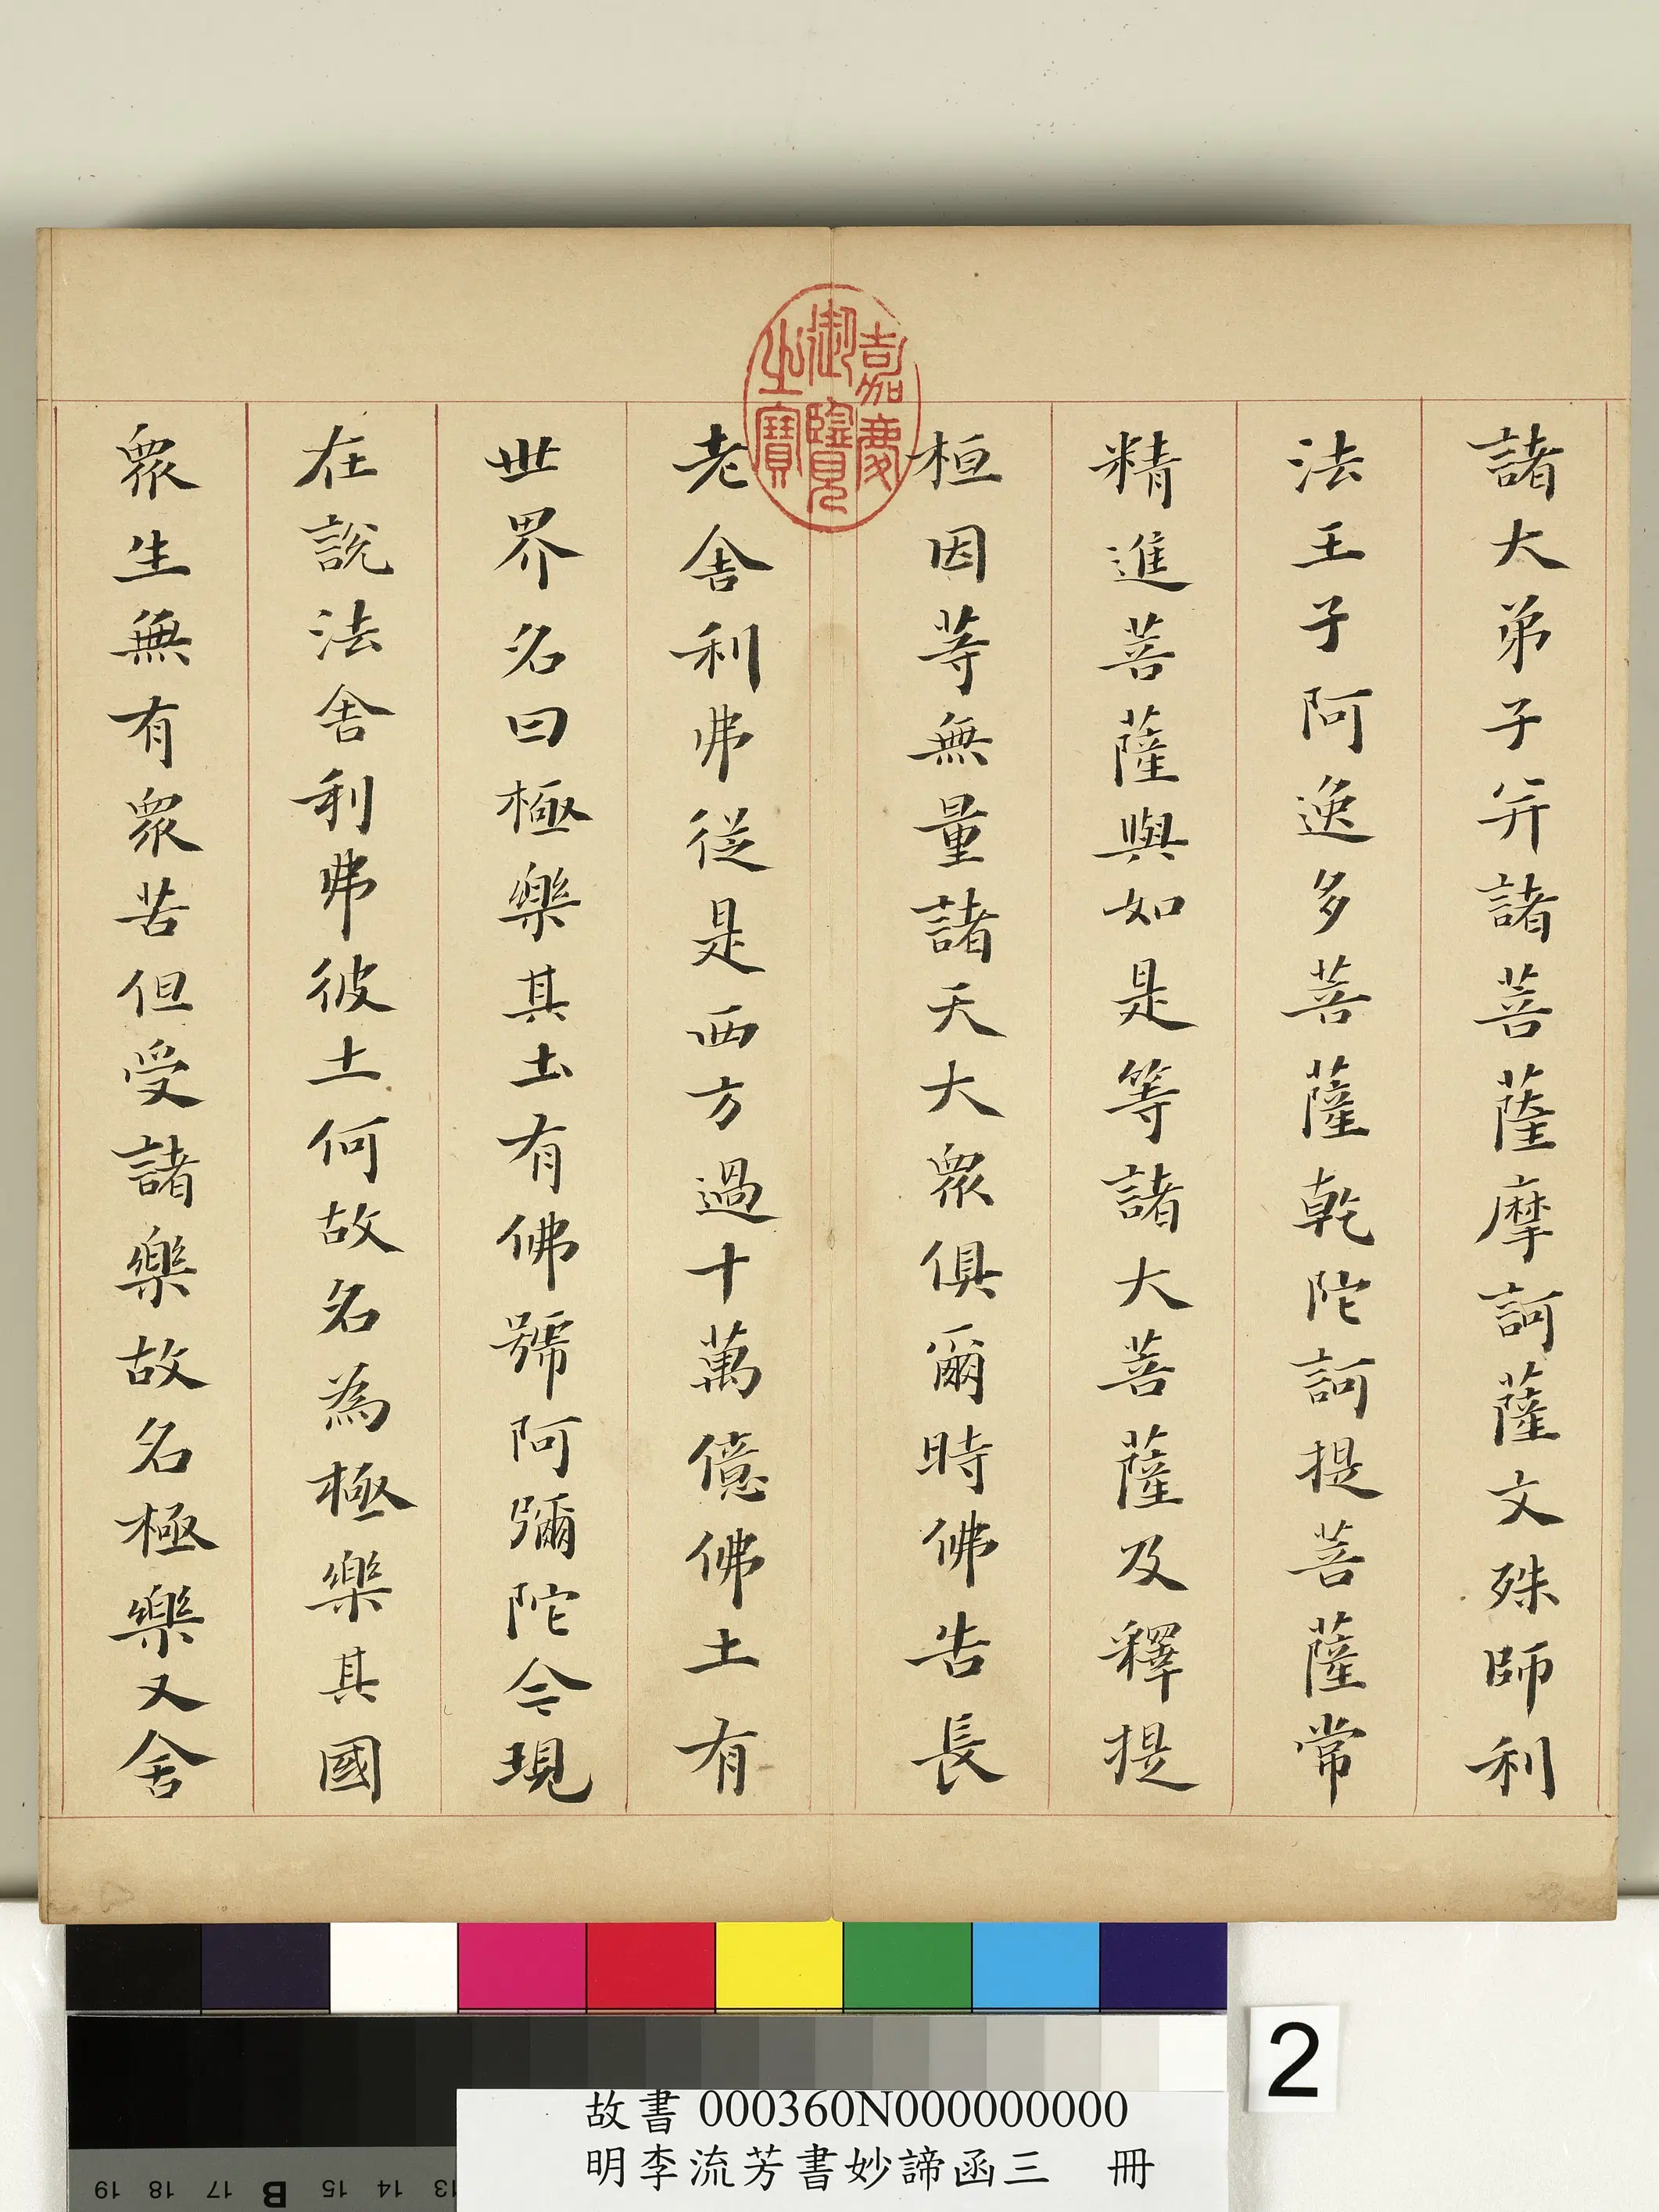 諸大弟子并諸菩薩摩訶薩文殊師利
法王子阿逸多菩薩乾陀訶提菩薩常
精進菩薩與如是等諸大菩薩及釋提
桓因等無量諸天大衆俱爾時佛告長
老舍利弗從是西方過十萬億佛土有
世界名曰極樂其土有佛號阿彌陀今現
在說法舍利弗彼土何故名為極樂其國
衆生無有衆苦但受諸樂故名極樂又舍
嘉慶
御覽
之寶
2
故書 000360N000000000
明李流芳書妙諦函三 冊
19 18 17 B 15 14 13